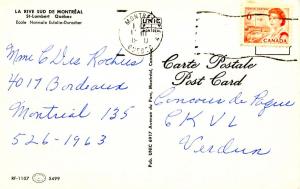 LA RIVE SUD DE MONTRÉAL
St-Lambert Québec
Ecole Normale Eulalie-Durocher
Mme C Des Rochers
4017 Bordeaux
Montréal 135
526-1963
RF-1107 5499
Pub. UNIC 6917 Avenue du Parc, Montréal, Canada
MONTR
QUEBEC
UNIC
MONTREAL
6
CANADA
Carte Postale
Post Card
Concours de Pâques
C K V L
Verdun